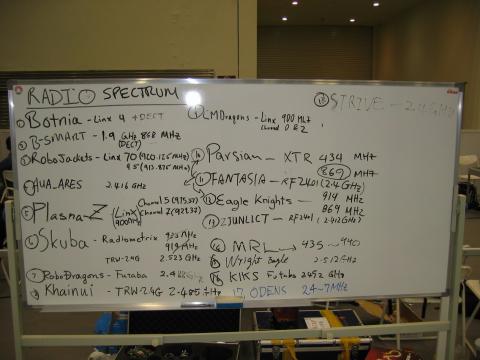 RADIO SPECTRUM
① Botnia - Linx 4 + DECT
② B-SMART - 1.9 GHz 868 MHz
(DECT)
③ RoboJackets - Linx 70 (920.125 MHz)
45 (913.875 MHz)
HUA_ARES 2.416 GHz
⑤ Plasma-Z (Linx 900MHz)
Channel 5 (975.37)
Channel 2 (927.32)
⑥ Skuba - Radiometrix
914 MHz
TRW-24G 2.523 GHz
⑦ RoboDragons - Futaba
⑧ Khainui - TRW-24G 2.485 GHz
CMDragons - Linx 900 MHz
Channel 0 & 2
⑩ Parsian - XTR 434 MHz
869 MHz
⑪ FANTASIA - RF2401 (2.4 GHz)
⑫ Eagle Knights - 914 MHz
869 MHz
⑬ ZJUNLICT - RF2401 (2.412 GHz)
MRL 435 - 440
Wright Eagle 2.512 GHz
KIKS Futaba 2452 GHz
17. ODENS 24~7MHz
⑱ STRIVE - 2.4 GHz